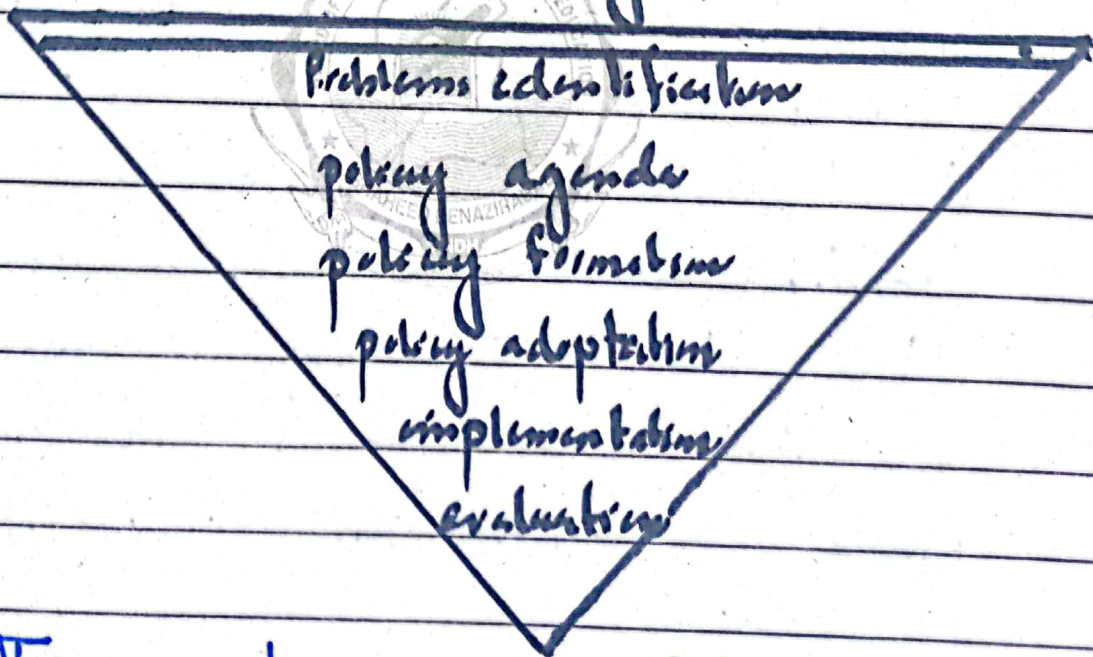 Problems identification
policy agenda
policy formation
policy adoptation
implementation
evaluation